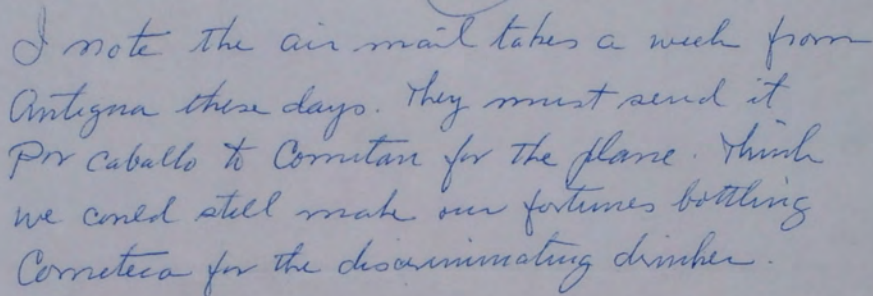 I note the air mail takes a week from
Antigua these days. They must send it
Por caballo to Comitan for the plane. Think
we could still make our fortunes bottling
Comiteca for the discriminating drinker.